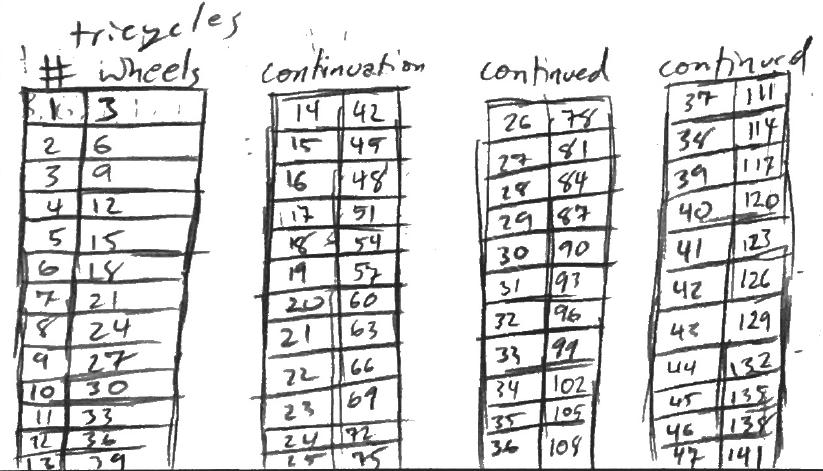 tricycles
# wheels
1 3
2 6
3 9
4 12
5 15
6 18
7 21
8 24
9 27
10 30
11 33
12 36
13 39
continuation
14 42
15 45
16 48
17 51
18 54
19 57
20 60
21 63
22 66
23 69
24 72
25 75
continued
26 78
27 81
28 84
29 87
30 90
31 93
32 96
33 99
34 102
35 105
36 108
continued
37 111
38 114
39 117
40 120
41 123
42 126
43 129
44 132
45 135
46 138
47 141